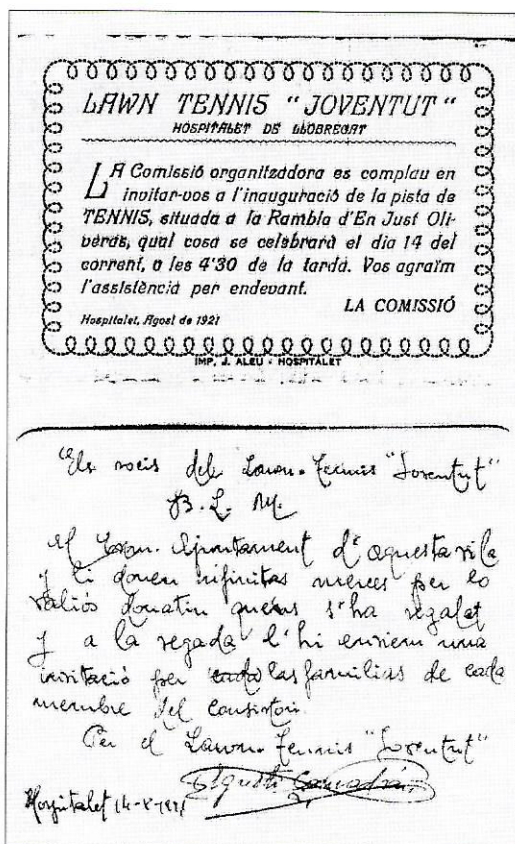 LAWN TENNIS "JOVENTUT"
HOSPITALET DE LLOBREGAT
LA Comissió organitzadora es complau en
invitar-vos a l'inauguració de la pista de
TENNIS, situada a la Rambla d'En Just Oli-
veras, qual cosa se celebrará el dia 14 del
corrent, a les 4'30 de la tarda. Vos agraïm
l'assistència per endevant.
LA COMISSIÓ
Hospitalet, Agost de 1921
IMP. J. ALEU - HOSPITALET
Els socis del Lawn-Tennis "Joventut"
B. L. M.
al Exm. Ajuntament d'aquesta vila
y li donen infinitas merces per lo
valiós donatiu quens s'ha regalat
y a la vegada l'hi enviem una
invitació per cada las familias de cada
membre del consistori.
Per el Lawn-Tennis "Joventut"
Agustí
Hospitalet 14-